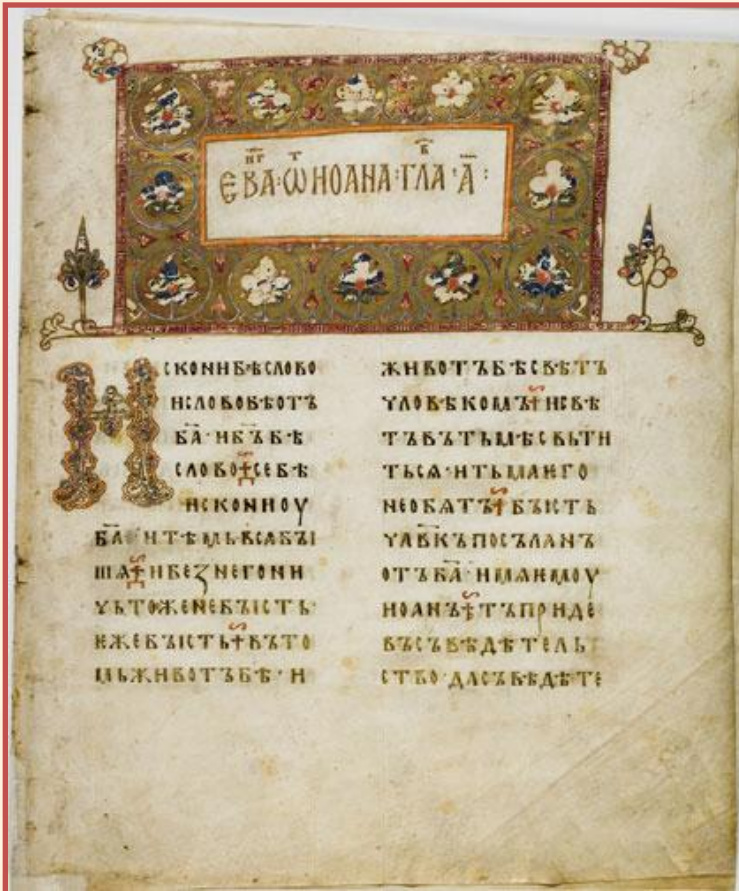 ЕВАⷩ҇ⷢ҇·ѾИОАНА·ГЛАⷡ҇·А҃:
ИСКОНИБѢСЛОВО
ИСЛОВОБѢОТЪ
Б҃А·ИБ҃ЪБѢ
СЛОВО СЕБѢ
ИСКОНИОУ
Б҃А·ИТѢМЬВСꙖБЪІ
ШѦ ИБЕꙁНЕГОНИ
ЧЬТОЖЕНЕБЪІСТЬ·
ЕЖЕБЪІСТЬ ВЪТО
МЬЖИВОТЪБѢ·И
ЖИВОТЪБѢСВѢТЪ
ЧЛОВѢКОМЪ ИСВѢ
ТЪВЪТЬМѢСВЬТИ
ТЬСѦ·ИТЬМАѤГО
НЕОБѦТЪ БЪІСТЬ
ЧЛ҃ВКЪПОСЪЛАНЪ
ОТЪБ҃А·ИМѦѤМОУ
ИОАНЪ ТЪПРИДЕ
ВЪСЪВѢДѢТЕЛЬ
СТВО·ДАСЪВѢДѢТЕ